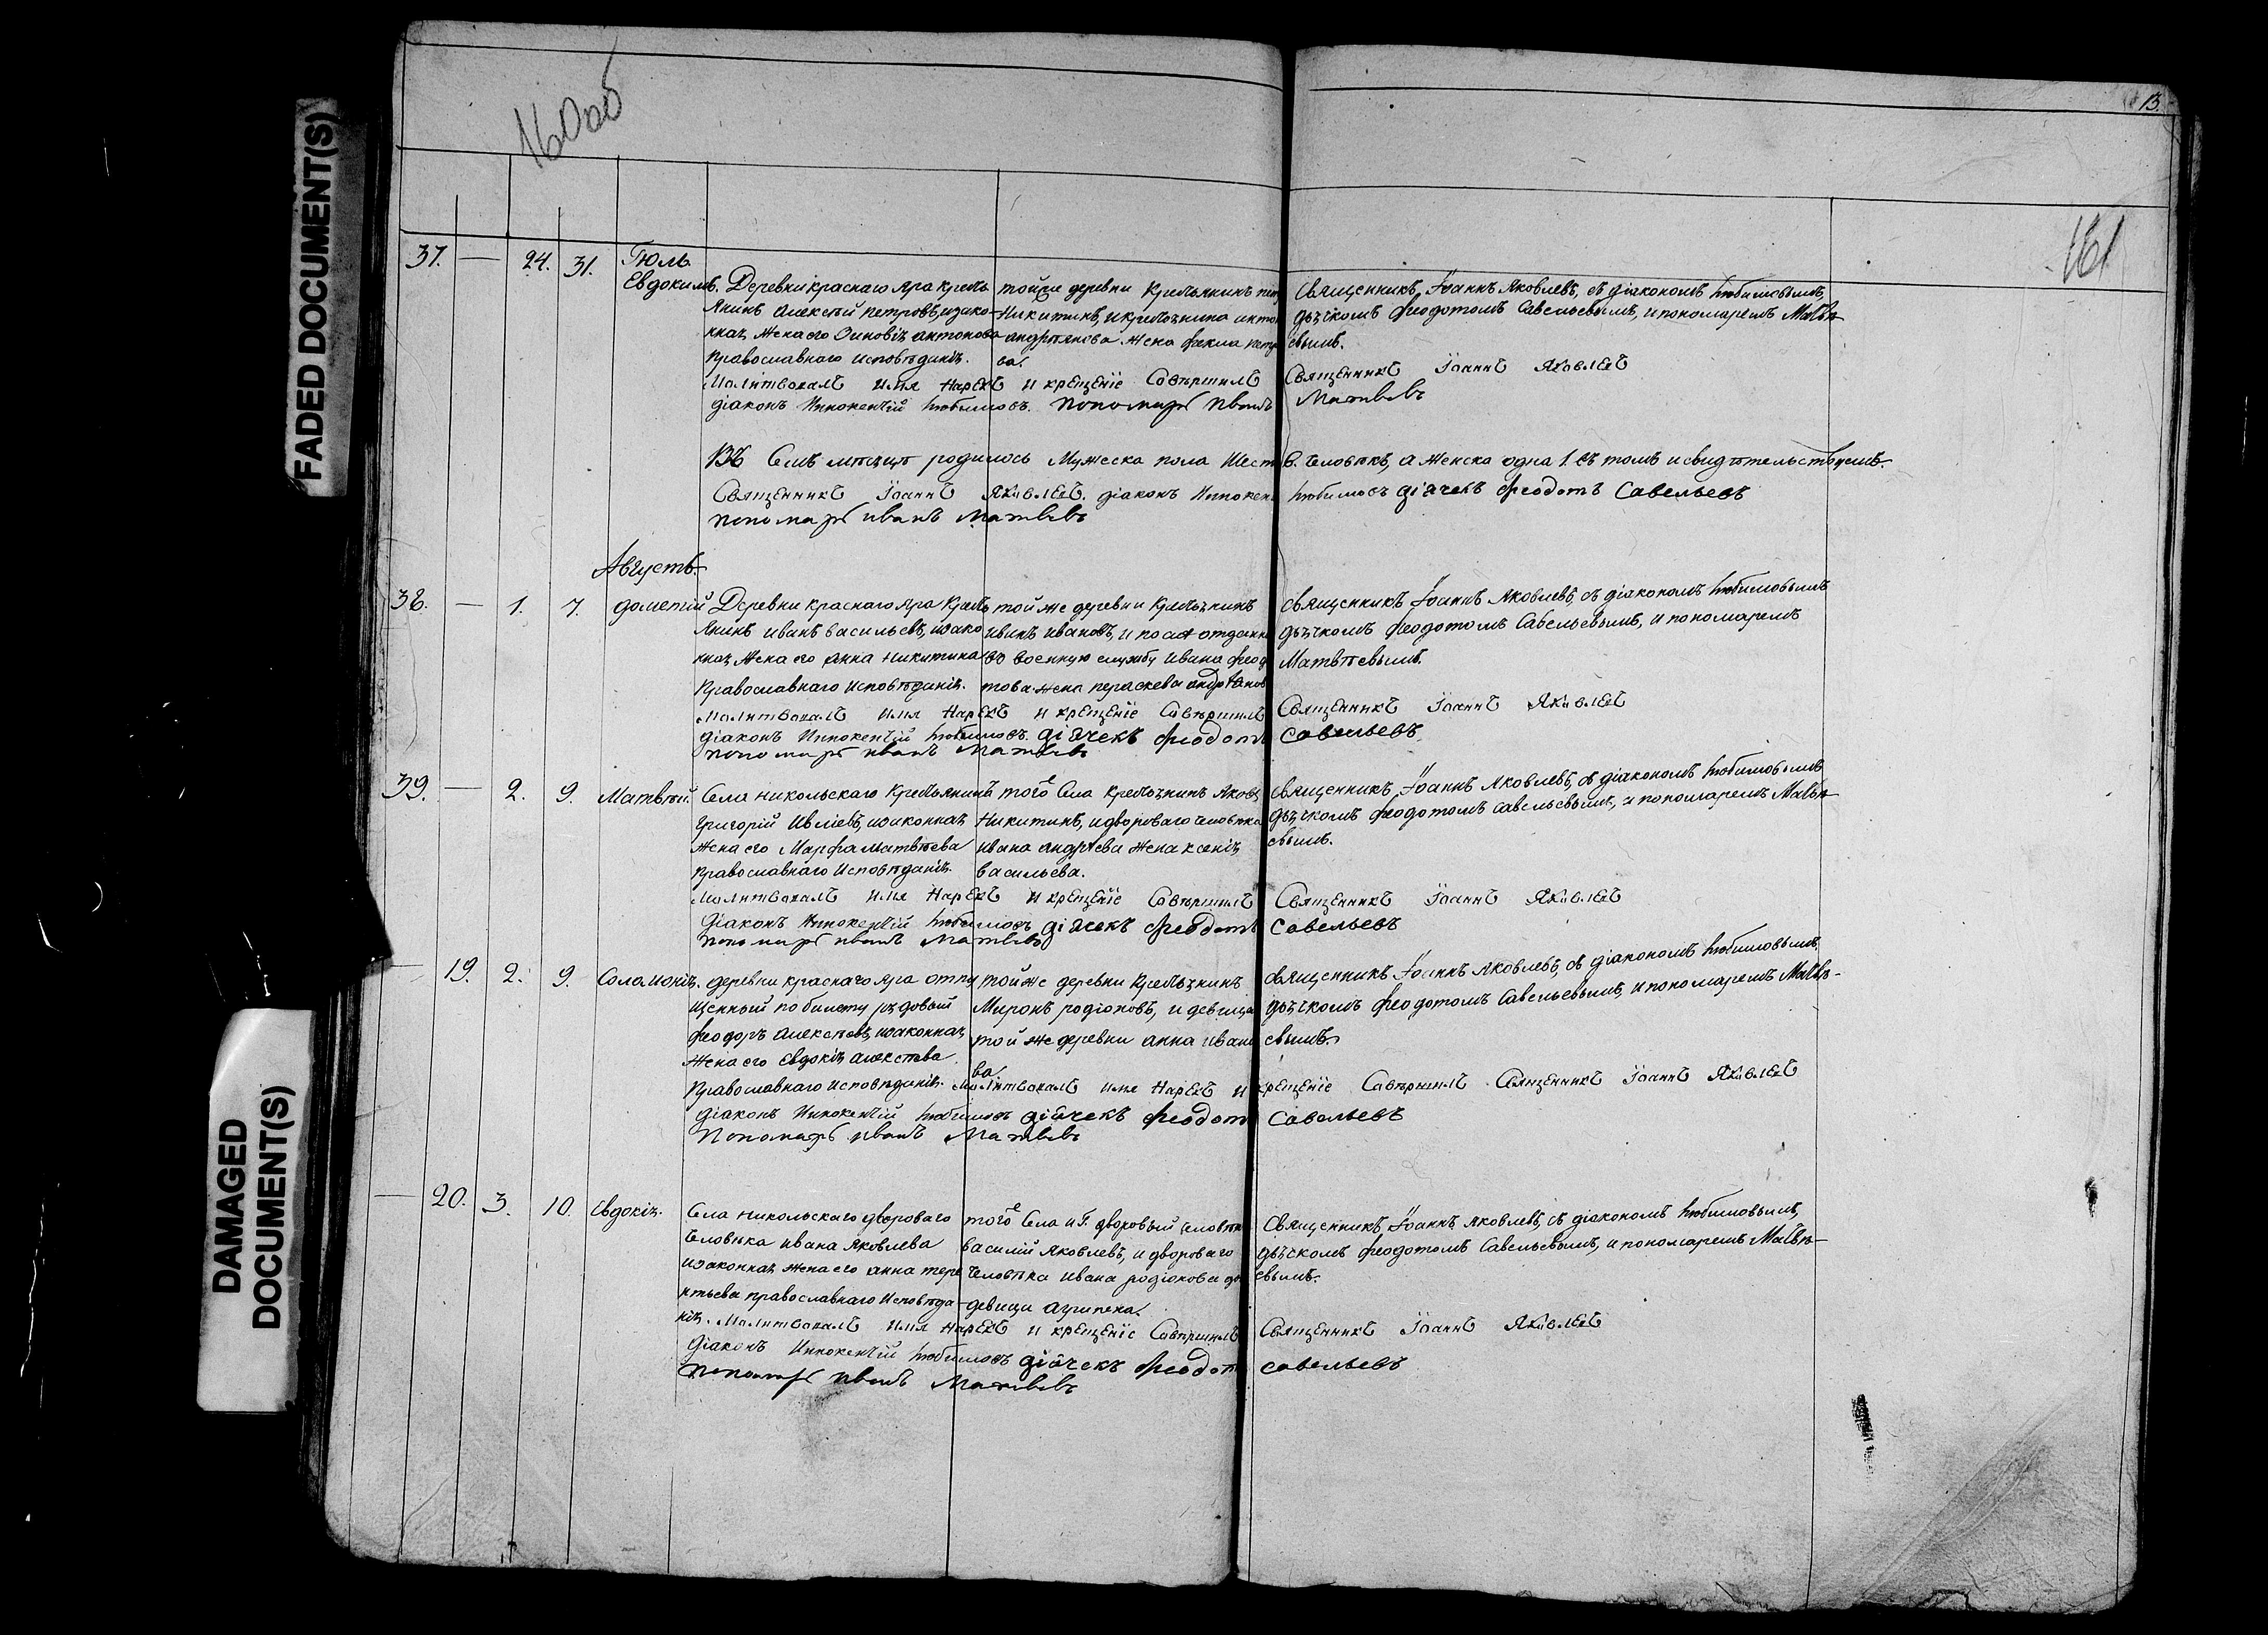 FADED DOCUMENT(S)
DAMAGED DOCUMENT(S)
160об
13.
161
Іюль
37. — 24. 31. Евдокимъ.
Деревни краснаго яра кресть
янинъ алексѣй петровъ, изако
нная жена его Зиновія антонова
православнаго исповѣданія.
тойже деревни крестьянинъ
Никитинъ, и крестьянина
андреянова жена фекла
ва.
Священникъ Іоаннъ Яковлевъ, съ діакономъ Любимовымъ,
дьячкомъ феодотомъ Савельевымъ, и пономаремъ Матвѣ
евымъ.
Молитвовалъ имя нарекъ и крещеніе совершилъ Священникъ Іоаннъ Яковлевъ
діаконъ Иннокентій Любимовъ. пономарь иванъ Матвѣевъ
Въ семъ мѣсяцѣ родилось мужеска пола шесть 6. человѣкъ, а женска одна 1. въ томъ и свидѣтельствуемъ.
Священникъ Іоаннъ Яковлевъ. діаконъ Иннокен Любимовъ діячекъ феодотъ Савельевъ
пономарь иванъ Матвѣевъ
Августъ.
38. — 1. 7. дометій
Деревни краснаго яра кресть
янинъ иванъ васильевъ, изако
нная жена его анна никитина
православнаго исповѣданія.
той же деревни крестьянинъ
ивановъ, и отданна
въ военную службу ивана феодо
това жена параскева андреянов
Священникъ Іоаннъ Яковлевъ, съ діакономъ Любимовымъ
дьячкомъ феодотомъ Савельевымъ, и пономаремъ
Матвѣевымъ.
Молитвовалъ имя нарекъ и крещеніе совершилъ Священникъ Іоаннъ Яковлевъ
діаконъ Иннокентій Любимовъ. діячекъ феодотъ Савельевъ
пономарь иванъ Матвѣевъ
39. — 2. 9. Матвѣй.
Села никольскаго крестьянинъ
григорій ивлиевъ, изаконная
жена его Марфа матвѣева
православнаго исповѣданія.
того Села крестьянинъ Яковъ
Никитинъ, и двороваго человѣка
ивана андреева жена ксенія
васильева.
Священникъ Іоаннъ Яковлевъ, съ діакономъ Любимовымъ
дьячкомъ феодотомъ савельевымъ, и пономаремъ Матвѣ
евымъ.
Молитвовалъ имя нарекъ и крещеніе совершилъ Священникъ Іоаннъ Яковлевъ
діаконъ Иннокентій Любимовъ діячекъ феодотъ Савельевъ
пономарь иванъ Матвѣевъ
— 19. 2. 9. Соломонія.
деревни краснаго яра отпу
щенный по билету рядовый
феодоръ алексѣевъ, изаконная
жена его Евдокія алексѣева
православнаго исповѣданія.
тойже деревни крестьянинъ
Миронъ родіоновъ, и девица
той же деревни анна ивано
ва
Священникъ Іоаннъ Яковлевъ, съ діакономъ Любимовымъ,
дьячкомъ феодотомъ Савельевымъ, и пономаремъ Матвѣ-
евымъ.
Молитвовалъ имя нарекъ и крещеніе совершилъ Священникъ Іоаннъ Яковлевъ
діаконъ Иннокентій Любимовъ діячекъ феодотъ Савельевъ
Пономарь иванъ Матвѣевъ
— 20. 3. 10. Евдокія.
Села никольскаго двороваго
человѣка ивана Яковлева
изаконная жена его анна тере
нтьева православнаго исповѣда
нія.
того Села и Г. дворовый человѣкъ
василій Яковлевъ, и двороваго
человѣка ивана родіонова до
девица агрипена.
Священникъ Іоаннъ Яковлевъ, съ діакономъ Любимовымъ,
дьячкомъ феодотомъ Савельевымъ, и пономаремъ Матвѣ
евымъ.
Молитвовалъ имя нарекъ и крещеніе совершилъ Священникъ Іоаннъ Яковлевъ
діаконъ Иннокентій Любимовъ діячекъ феодотъ савельевъ
пономарь иванъ Матвѣевъ